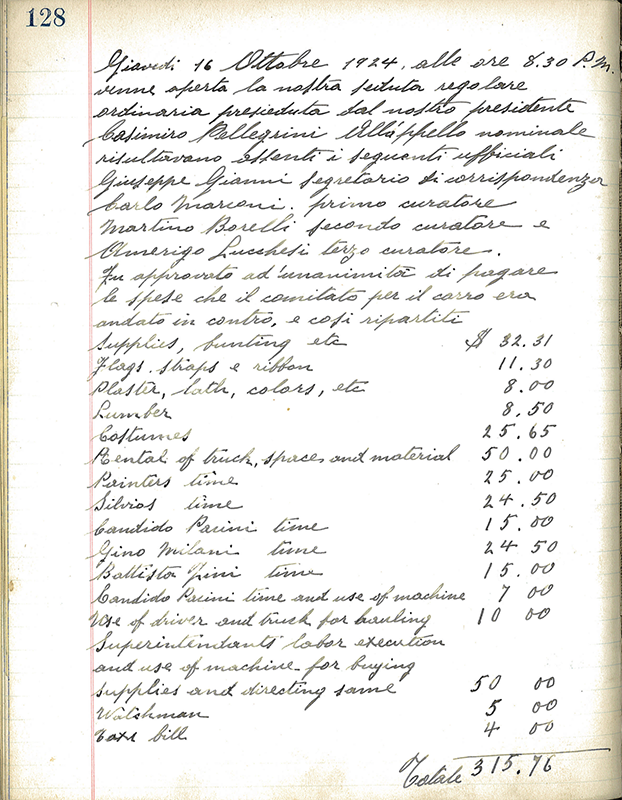 128
Giovedi 16 Ottobre 1924, alle ore 8.30 P.M.
venne aperta la nostra seduta regolare
ordinaria presieduta dal nostro presidente
Casimiro Pellegrini All'appello nominale
risultavano assenti i seguenti ufficiali
Giuseppe Gianni segretario di corrispondenza
Carlo Marconi. primo curatore
Martino Borelli secondo curatore e
Amerigo Lucchesi terzo curatore.
Fu approvato ad unanimità di pagare
le spese che il comitato per il carro era
andato in contro, e cosi ripartiti
Supplies, bunting etc $ 32.31
Flags. straps e ribbon 11.30
Plaster, lath, colors, etc 8.00
Lumber 8.50
Costumes 25.65
Rental of truck, spaces and material 50.00
Painters time 25.00
Silvios time 24.50
Candido Pacini time 15.00
Gino Milani time 24 50
Battista Fini time 15.00
Candido Pacini time and use of machine 7 00
Use of driver and truck for hauling 10 00
Superintendants labor execution
and use of machine for buying
supplies and directing same 50 00
Watchman 5 00
bill 4 00
Totale 315.76